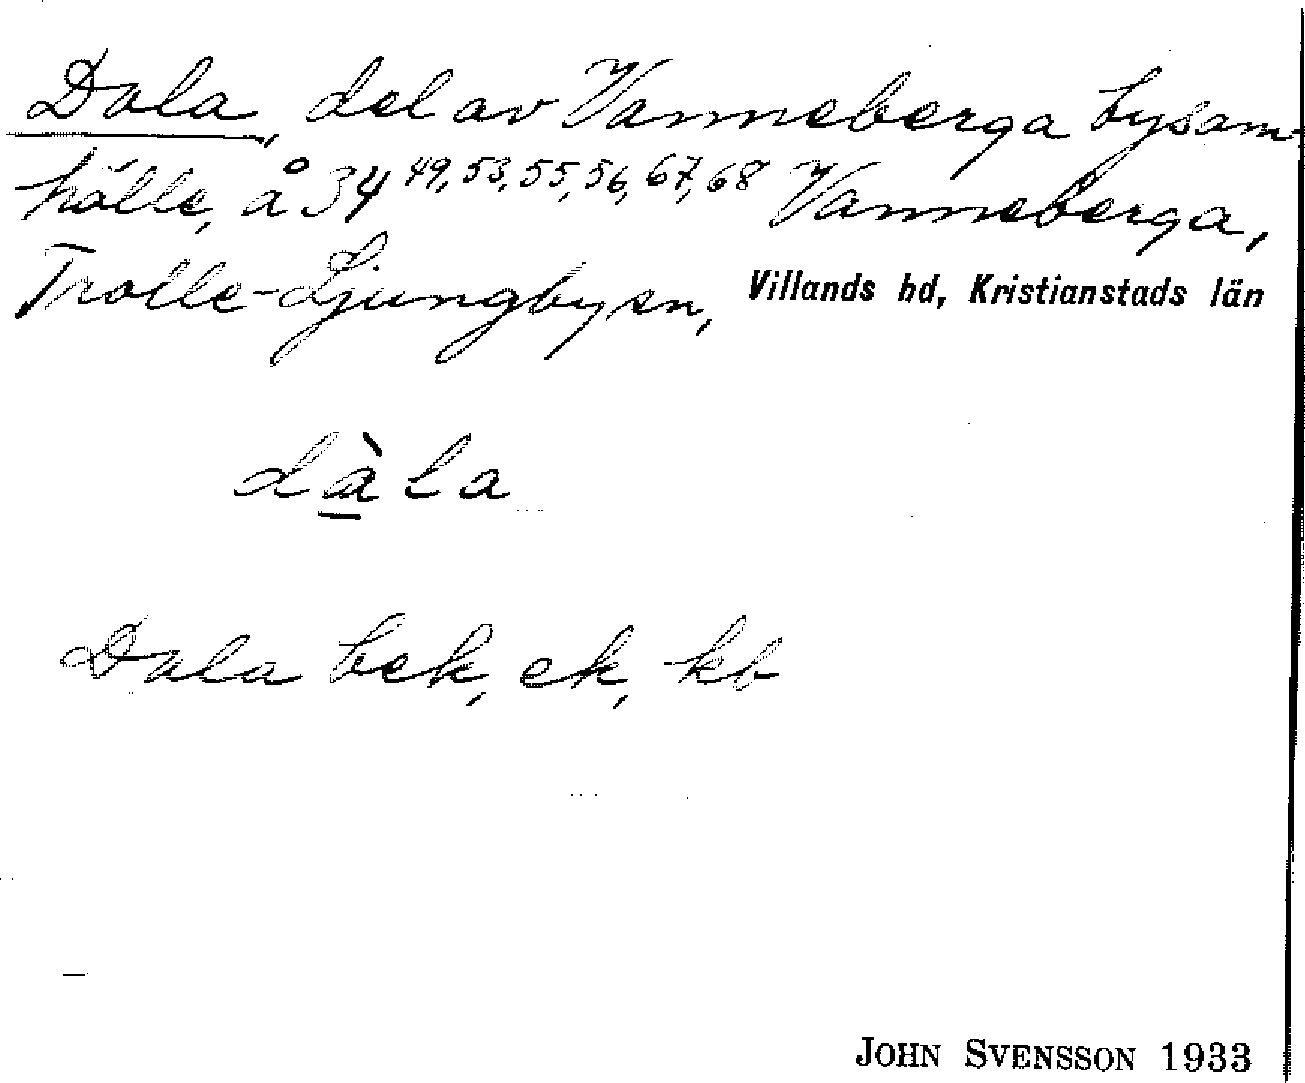 Dala, del av Vanneberga bysam-
hälle, å 34 49, 53, 55, 56, 67, 68 Vanneberga,
Trolle-Ljungby sn, Villands hd, Kristianstads län
dàla
Dala bek, ek, kb
JOHN SVENSSON 1933